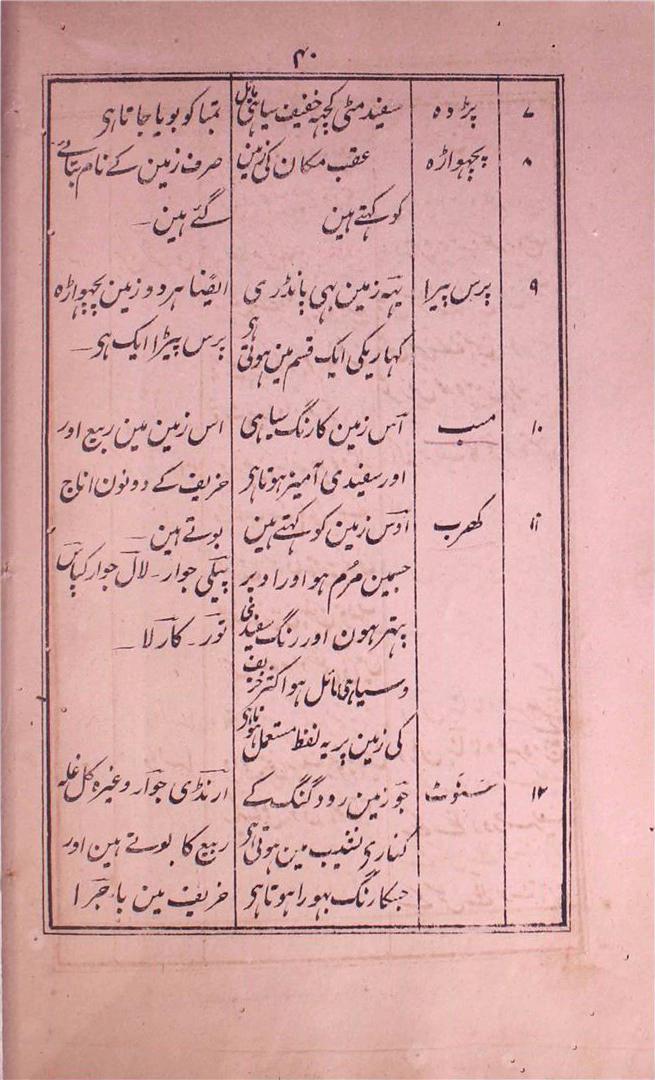 ۴۰
۷ پڑدہ سفید مٹی کچھہ خفیف سیاہی مائل تمباکو بویا جاتا ہی
۸ پچھواڑہ عقب مکان کی زمین صرف زمین کے نام بتائے
کو کہتے ہین گئے ہین۔
۹ پرس پیرا یہہ زمین بہی پانڈری ایضًا ہر دو زمین پچھواڑہ
کہاریکی ایک قسم مین ہوتی ہی پرس پیڑا ایک ہی۔
۱۰ مسب اس زمین کا رنگ سیاہی اس زمین مین ربیع اور
اور سفیدی آمیز ہوتا ہی خریف کے دونون اناج
۱۱ کھرب اوس زمین کو کہتے ہین بوتے ہین۔
جسمین مرُم ہو اور اوپر پیلی جوار۔ لال جوار کپاس
پتہر ہون اور رنگ سفیدی تور۔ کارلا۔
وسیاہی مائل ہو اکثر خریف
کی زمین پر یہ لفظ مستعمل ہوتا ہی
۱۲ جو زمین رود گنگ کے ارنڈی جوار وغیرہ کل غلہ
کناری نشیب مین ہوتی ہی ربیع کا بوتے ہین اور
جسکا رنگ بہورا ہوتا ہی خریف مین باجرا